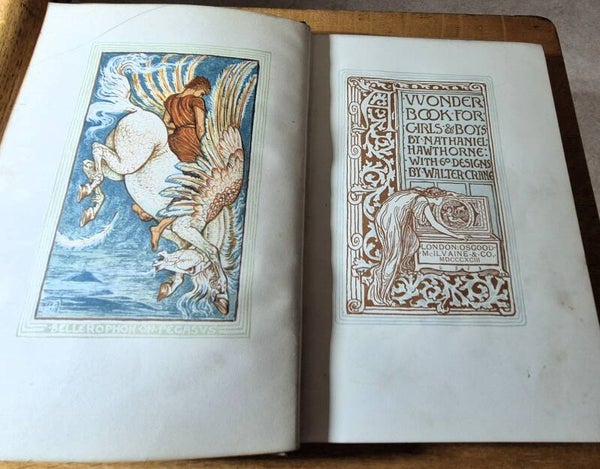 BELLEROPHON ON PEGASVS
WONDER
BOOK FOR
GIRLS & BOYS
BY NATHANIEL
HAWTHORNE:
WITH 60 DESIGNS
BY WALTER CRANE
LONDON: OSGOOD
McILVAINE & CO.
MDCCCXCIII